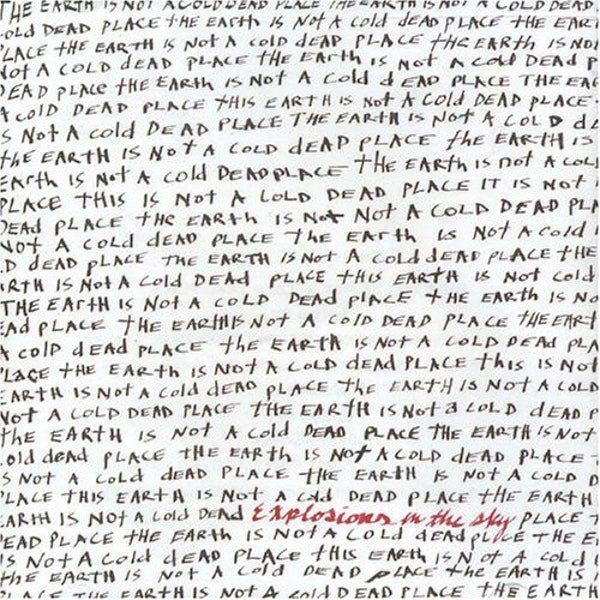 THE EARTH IS NOT A COLD DEAD PLACE THE EARTH IS NOT A COLD DEAD
OLD DEAD PLACE THE EARTH IS NOT A COLD DEAD PLACE THE EAR
LACE THE EARTH IS NOT A COLD DEAD PLACE THE EARTH IS NO
NOT A COLD dEAD PLACE THE EARTH IS NOT A COLD DEAD P
DEAD PLACE tHE EARth IS NOT A Cold d EAD PLACE THE EA
A COLD DEAD PLACE tHIS EARTH IS NOt A COLD DEAD PLACE
S NOt A cold DEAD PLACE THE EARtH IS NOT A COLD d
the EARTH IS NOT A COLD dEAD PLACE the EARTH IS
EArth IS NOt A Cold DEAD PLACE tHE EARth IS not A COL
PLACE THIS IS NOT A COLD DEAD PLACE IT IS NOT
DEAD PLACE tHE EARth IS NOt NOt A COLD DEAD PLA
NOT A COLD dEAD PLACE the EArtH IS NOT A Cold I
D dEAD pLACE THE EARTH IS NOt A COLD dEAD PLACE tHE
IRTH IS NOt A COLD DEAd PLACE tHIS EARtH IS NOt cold
THE EArtH IS NOt A COLD DEAd PLACE tHE EARTH IS NO
EAd PLACE tHE EARtH IS NOt A COLD DEAD PLACE tHE EART
A COLD dEAD PLACE tHE EARTH IS NOt A COLD DEAd PLA
LACE tHE EARtH IS NOT A COLD dEAd PLACE tHIS IS NOt
EARtH IS NOt A Cold dEAD PLACE tHE EARTH IS NOT A COLD
NOT A COLD DEAD PLACE tHE EARTH IS NOt a COLD dEAD P
tHE EARTH IS NOt A Cold DEAD PLACE tHE EARTH IS NOT
old dEAd PLACE tHE EARtH IS NOt A COLD DEAD PLACE
S NOt A COLD dEAD PLACE tHE EARtH IS NOT A COLD D
LACE THIS EARtH IS NOt A COLD DEAD PLACE tHE EARTH
EARtH IS NOt A COLD DEAD Explosions in the sky PLACE T
EAD PLACE tHE EARtH IS NOT A COLD dEAd pLACE tHE E
IS NOt A Cold dEAD PLACE tHIS EARtH IS NOt A COLd I
tHE EARTH IS NOt A COLD DEAD PLACE tHE EARtH IS
PLACE tHE EARtH IS NOt A COLD DEAD PLACE tHE EARtH